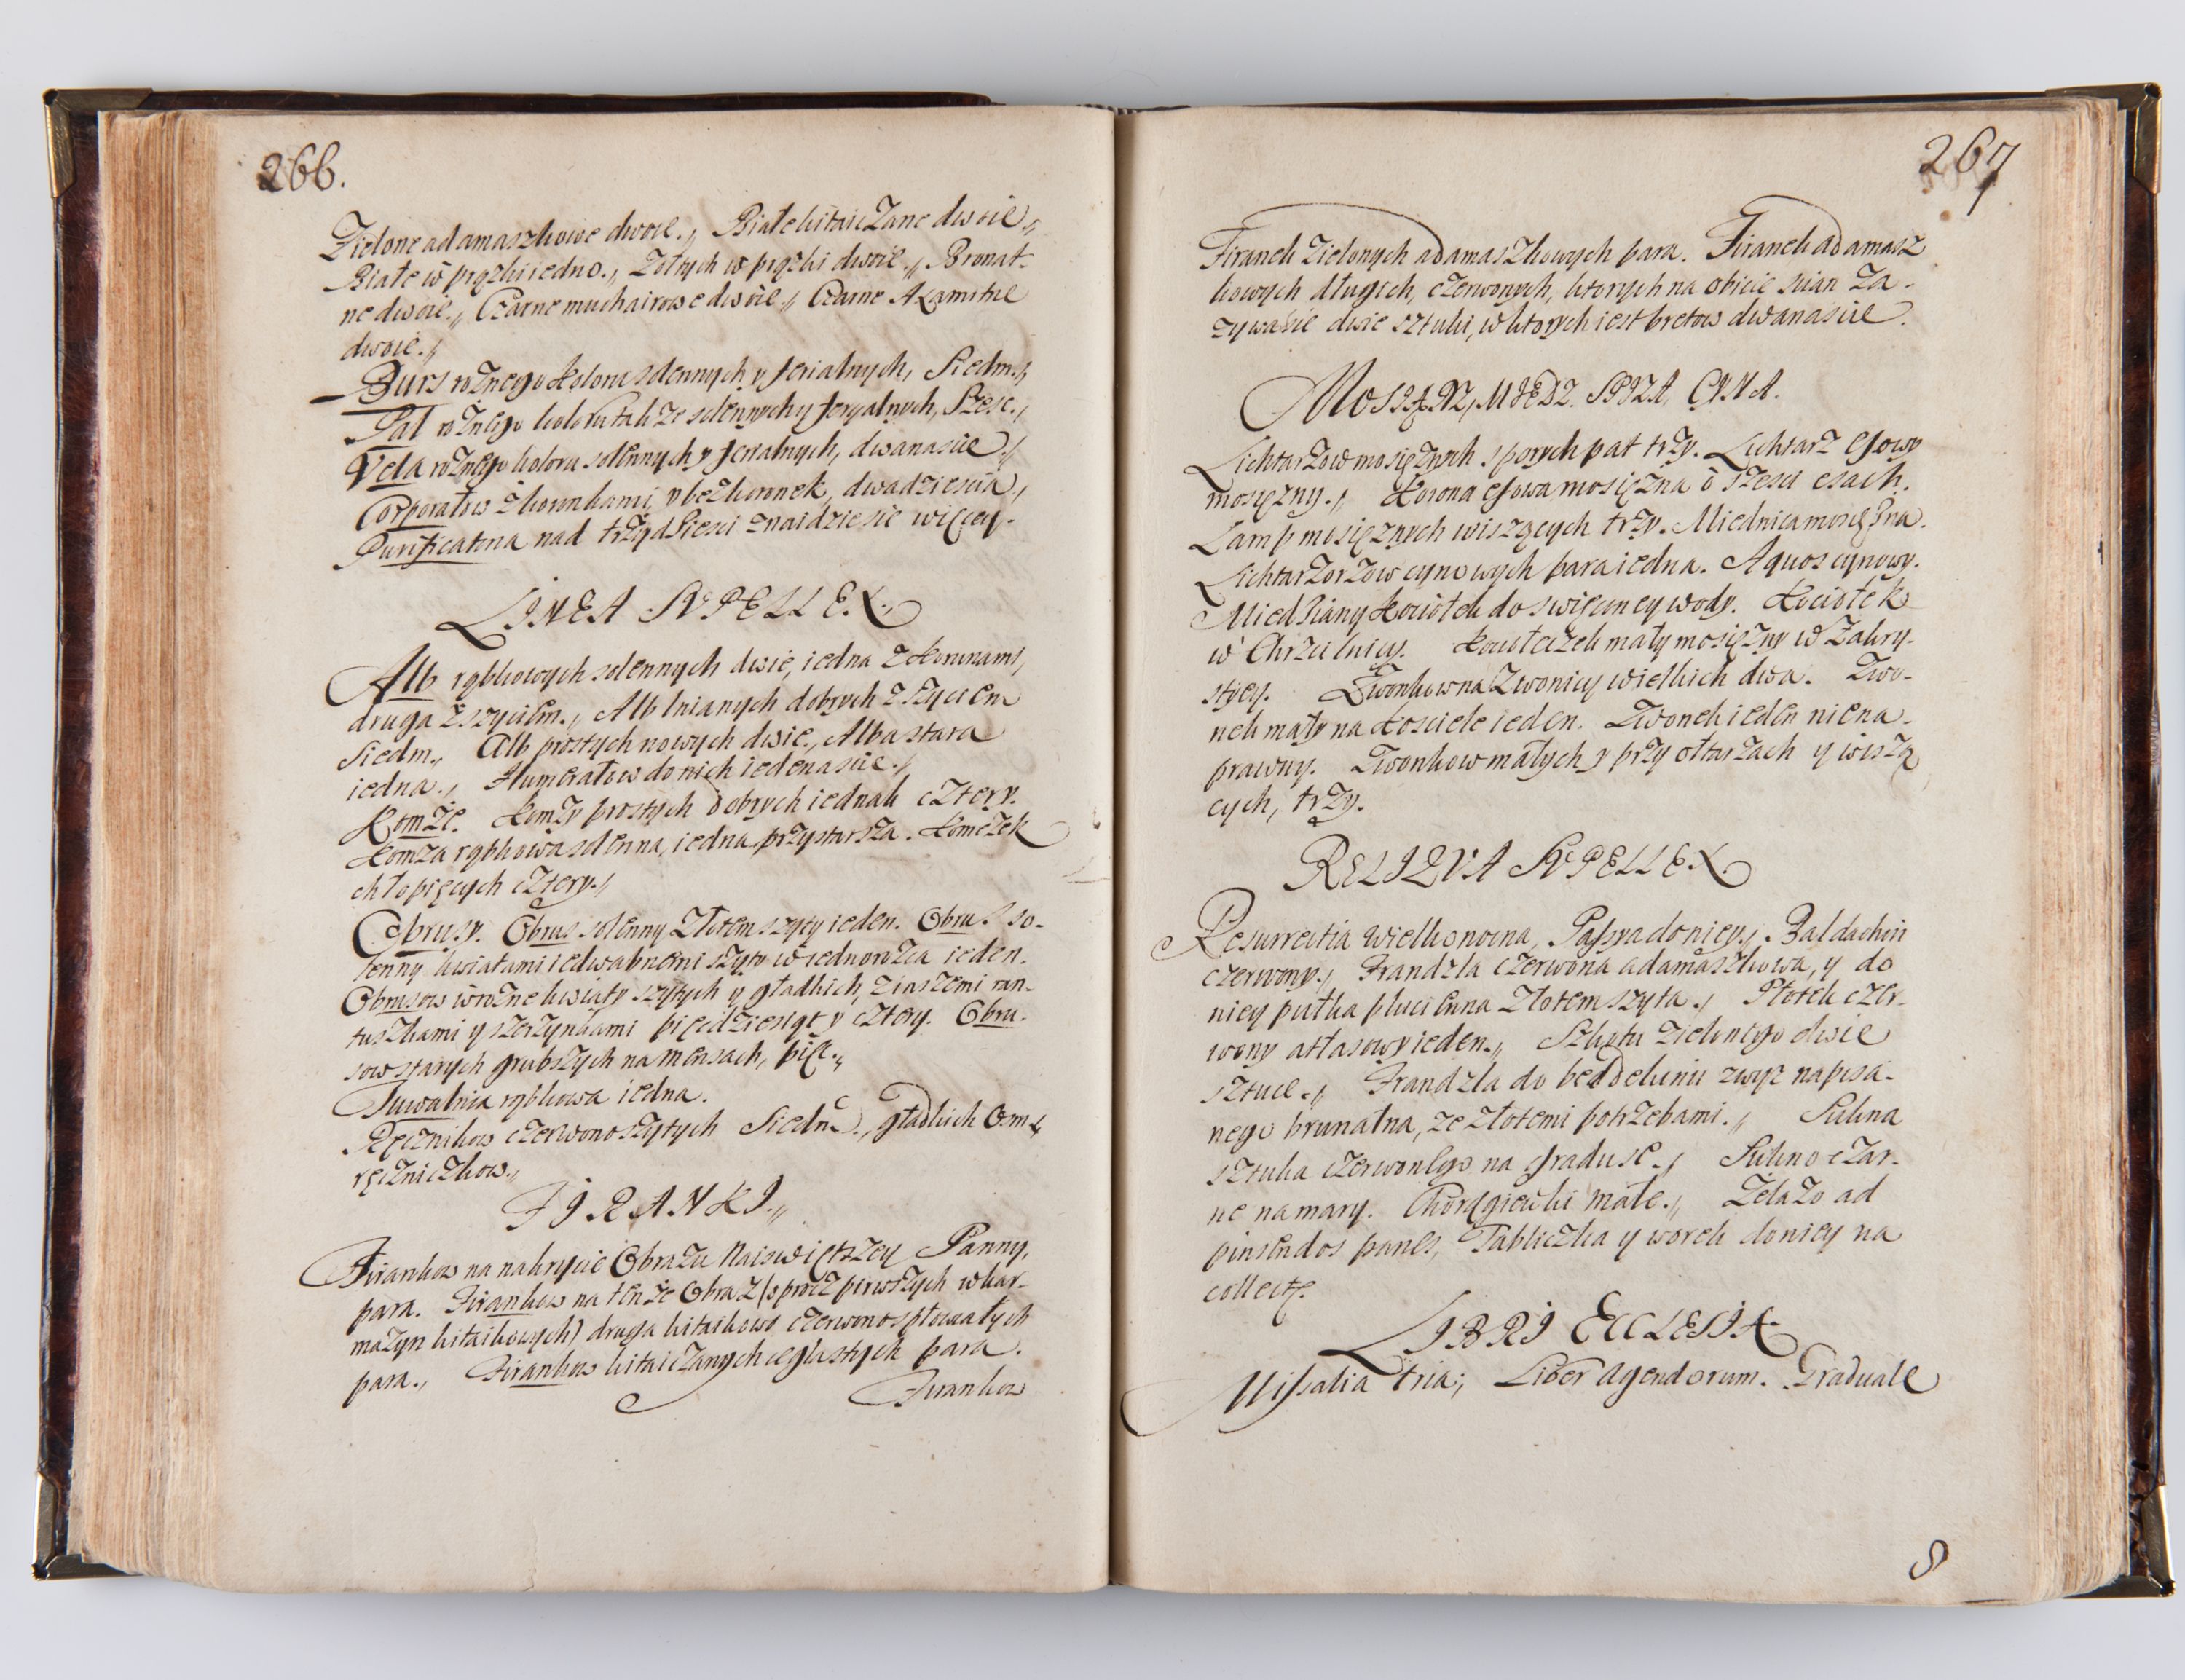 266.
Zielone adamaszkowe dwoie., Białe kitaiczane dwoie.,
Białe w prążki iedno., Żołtych w prążki dwoie., Bronat-
ne dwoie., Czarne muchairowe dwoie., Czarne Axamitne
dwoie.,
Burs rożnego koloru solennych y ferialnych, Siedm.,
Pal rożnego koloru także solennych y feryalnych, Szesc.,
Vela rożnego koloru solennych y ferialnych, dwanascie.,
Corporałow z koronkami y bez koronek, dwadziescia.,
Purificatoria nad trzydziesci znaidzie sie więcey.
LINEA SUPELLEX.,
Alb rąbkowych solennych dwie, iedna z koronami,
druga z szyciem., Alb lnianych dobrych z szyciem
Siedm., Alb prostych nowych dwie., Alba stara
iedna., Humerałow do nich iedenascie.,
Komże. Komży prostych dobrych iednak cztery.
Komża rąbkowa solenna, iedna przystarsza. Komeżek
chłopięcych cztery.,
Obrusy. Obrus solenny złotem szyty ieden. Obrus so-
lenny kwiatami iedwabnemi szyty w iednorożca ieden.
Obrusow w rożne kwiaty szytych y gładkich, z iaszemi ran-
tuszkami y szerzynkami pięćdziesiąt y cztery. Obru-
sow starych grubszych na mensach, pięc.,
Tuwalnia rąbkowa iedna.
Ręcznikow czerwono szytych Siedm., gładkich Osm.,
ręczniczkow.,
FIRANKI.,
Firankow na nakrycie Obrazu Naiswiętszey Panny,
para. Firankow na tenże Obraz (oprocz pirwszych w kar-
mazyn kitaikowych) druga kitaikowo czerwono spłowiałych
para., Firankow kitaiczanych ceglastych para.
Firankow
267
Firanek zielonych adamaszkowych para. Firanek adamasz
kowych długich, czerwonych, ktorych na obicie scian za-
zywacie dwie sztuki, w ktorych iest bretow dwanascie.
MOSIĄDZ, MIEDZ. SPIZA, CYNA.
Lichtarzow mosięznych sporych par trzy. Lichtarz esowy
mosięzny., Korona esowa mosięzna o szesci esach.
Lamp mosięznych wiszących trzy. Miednica mosięzna.
Lichtarzorzow cynowych para iedna. Aquos cynowy.
Miedziany kociołek do swięconey wody. Kociołek
w Chrzcilnicy. Kociołczek mały mosięzny w Zakry-
styey. Dzwonkow na Zwonicy wielkich dwa. Zwo-
nek mały na Kosciele ieden. Zwonek ieden niena-
prawny. Zwonkow małych y przy ołtarzach y wiszą
cych, trzy.
RELIQVA SUPELLEX.
Resurrectia wielkonocna, Passya do niey., Baldachin
czerwony., Frandzla czerwona adamaszkowa, y do
niey pułka płucienna złotem szyta., Płotek czer-
wony atłasowy ieden., Szluptu zielonego dwie
sztuce., Frandzla do beddekinu zwyz napisa-
nego brunatna, ze złotemi potrzebami., Sukna
sztuka czerwonego na graduse., Sukno czar-
ne na mary. Chorągiewki małe., Zelazo ad
pinsendos panes, Tabliczka y worek do niey na
collectę.
LIBRI ECCLESIÆ.
Missalia tria; Liber Agendorum. Graduale
S